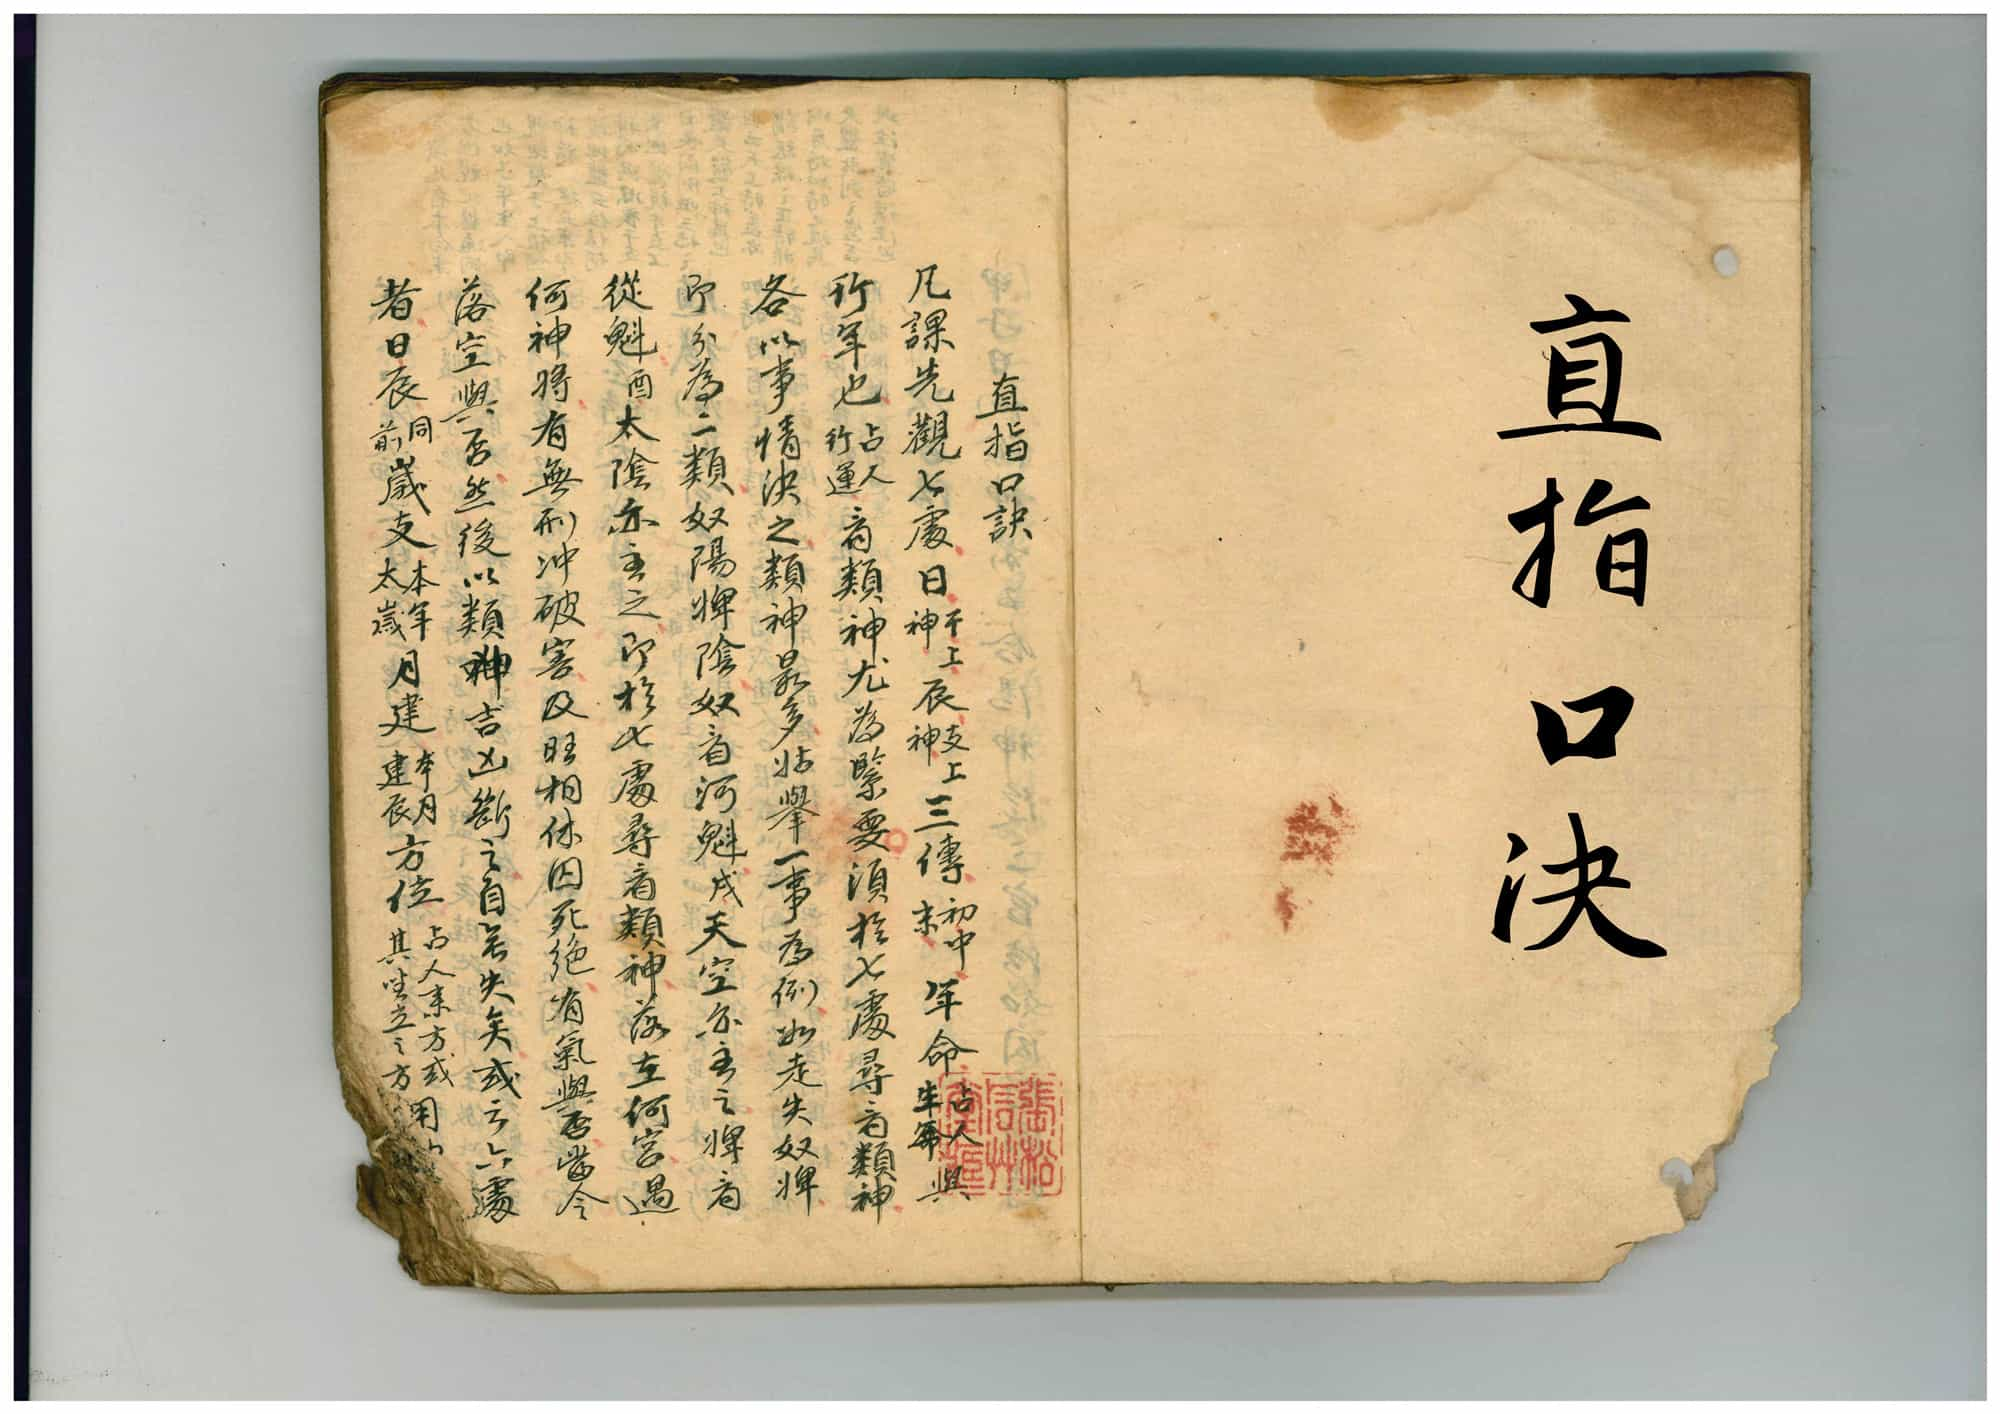 直指口決
直指口訣
凡課先觀七處日干上神辰支上神三傳初中末年命占人生年與
行年也占人行運看類神尤為緊要須於七處尋看類神
各以事情決之類神最多姑舉一事為例如走失奴婢
即分為二類奴陽婢陰奴看河魁戌天空亦主之婢看
從魁酉太陰亦主之即於七處尋看類神落在何宮遇
何神將有無刑冲破害及旺相休囚死絕有氣與否當令
落空與否然後以類神吉凶斷之自無失矣或云六處
者日辰同前歲支本年太歲月建本月建辰方位占人來方或其坐立之方用